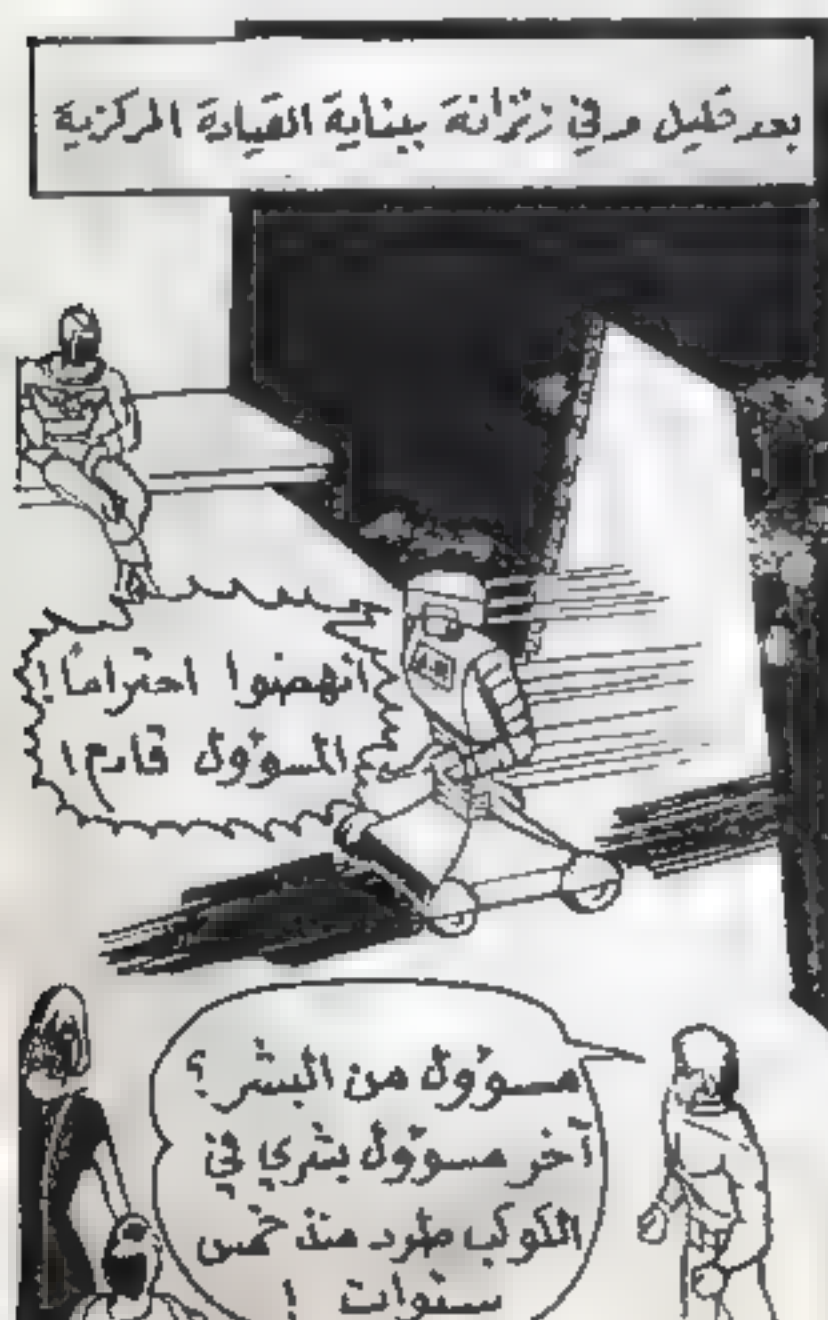 بعد قليل وفي زنزانة ببناية القيادة المركزية
انهضوا احتراماً!
المسؤول قادم!
مسؤول من البشر؟
آخر مسؤول بشري في
الكوكب طرد منذ خمس
سنوات !